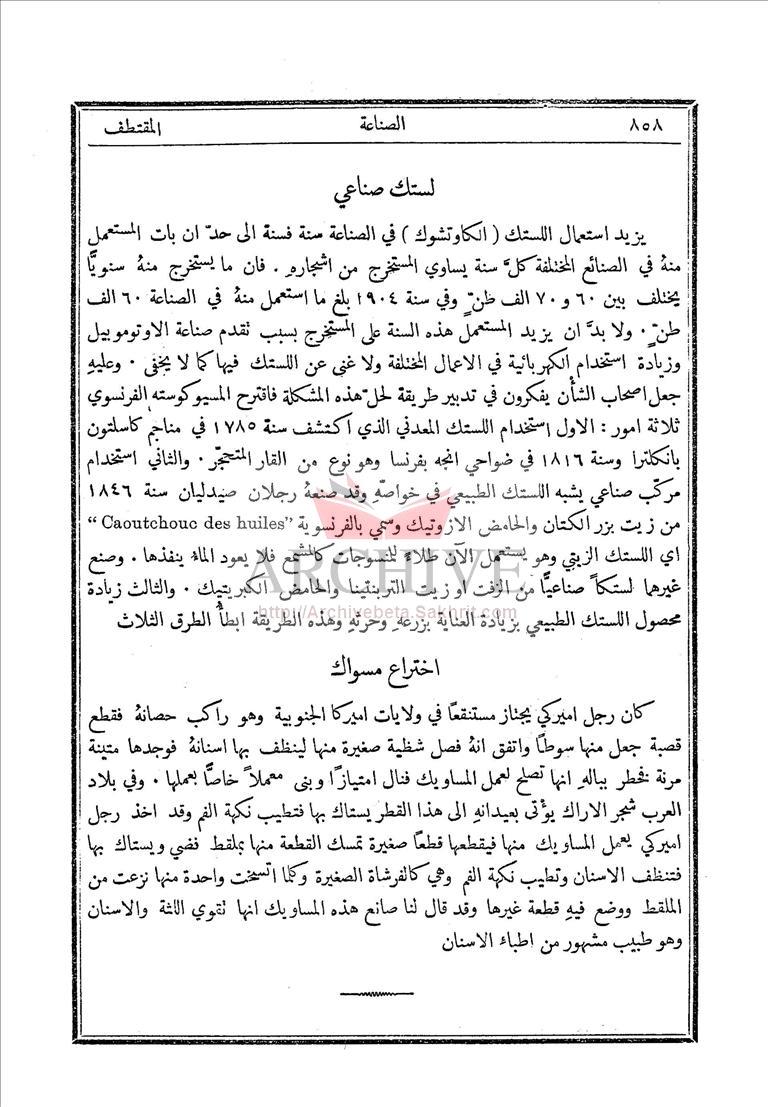 ٨٥٨ الصناعة المقتطف
لستك صناعي
يزيد استعمال اللستك ( الكاوتشوك ) في الصناعة سنة فسنة الى حدّ ان بات المستعمل
منهُ في الصنائع المختلفة كلَّ سنة يساوي المستخرج من اشجارهِ . فان ما يستخرج منهُ سنويًّا
يختلف بين ٦٠ و ٧٠ الف طنّ وفي سنة ١٩٠٤ بلغ ما استعمل منهُ في الصناعة ٦٠ الف
طنّ . ولا بدَّ ان يزيد المستعمل هذه السنة على المستخرج بسبب تقدم صناعة الاوتوموبيل
وزيادة استخدام الكهربائية في الاعمال المختلفة ولا غنى عن اللستك فيها كما لا يخفى . وعليهِ
جعل اصحاب الشأن يفكرون في تدبير طريقة لحلّ هذه المشكلة فاقترح المسيو كوسته الفرنسوي
ثلاثة امور : الاول استخدام اللستك المعدني الذي اكتشف سنة ١٧٨٥ في مناجم كاسلتون
بانكلترا وسنة ١٨١٦ في ضواحي انجه بفرنسا وهو نوع من القار المتحجّر . والثاني استخدام
مركّب صناعي يشبه اللستك الطبيعي في خواصّهِ وقد صنعهُ رجلان صيدليان سنة ١٨٤٦
من زيت بزر الكتان والحامض الازوتيك وسمي بالفرنسوية "Caoutchouc des huiles"
اي اللستك الزيتي وهو يستعمل الآن طلاءً للمنسوجات كالمشمع فلا يعود الماءُ ينفذها . وصنع
غيرها لستكاً صناعيًّا من الزفت او زيت التربنتينا والحامض الكبريتيك . والثالث زيادة
محصول اللستك الطبيعي بزيادة العناية بزرعهِ وحرثهِ وهذه الطريقة ابطأُ الطرق الثلاث
اختراع مسواك
كان رجل اميركي يجتاز مستنقعاً في ولايات اميركا الجنوبية وهو راكب حصانهُ فقطع
قصبة جعل منها سوطاً واتفق انهُ فصل شظية صغيرة منها لينظف بها اسنانهُ فوجدها متينة
مرنة فخطر ببالهِ انها تصلح لعمل المساويك فنال امتيازًا وبنى معملاً خاصًّا بعملها . وفي بلاد
العرب شجر الاراك يؤتى بعيدانهِ الى هذا القطر يستاك بها فتطيب نكهة الفم وقد اخذ رجل
اميركي يعمل المساويك منها فيقطعها قطعاً صغيرة تمسك القطعة منها بملقط فضي ويستاك بها
فتنظف الاسنان وتطيب نكهة الفم وهي كالفرشاة الصغيرة وكلما اتسخت واحدة منها نزعت من
الملقط ووضع فيهِ قطعة غيرها وقد قال لنا صانع هذه المساويك انها تقوي اللثة والاسنان
وهو طبيب مشهور من اطباء الاسنان
ARCHIVE
http://Archivebeta.Sakhrit.com